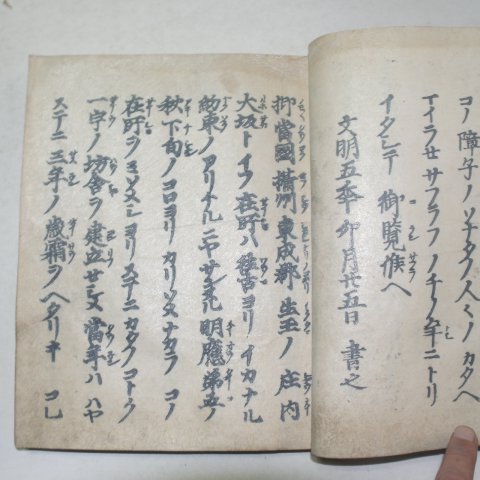 コノ障子ノソナタノ人〱ノカタヘ
マイラセサフラフノチノ年ニトリ
イタシテ御覧候ヘ
文明五年卯月廿五日書之
抑當國攝州東成郡生玉ノ庄内
大坂トイフ在所ハ往古ヨリイカナル
約束ノアリケルニヤサンヌル明應第五ノ
秋下旬ノコロヨリカリソメナカラコノ
在所ヲミソメシヨリステニカタノコトク
一宇ノ坊舎ヲ建立セシメ當年ハハヤ
ステニ三年ノ歳霜ヲヘタリキコレ